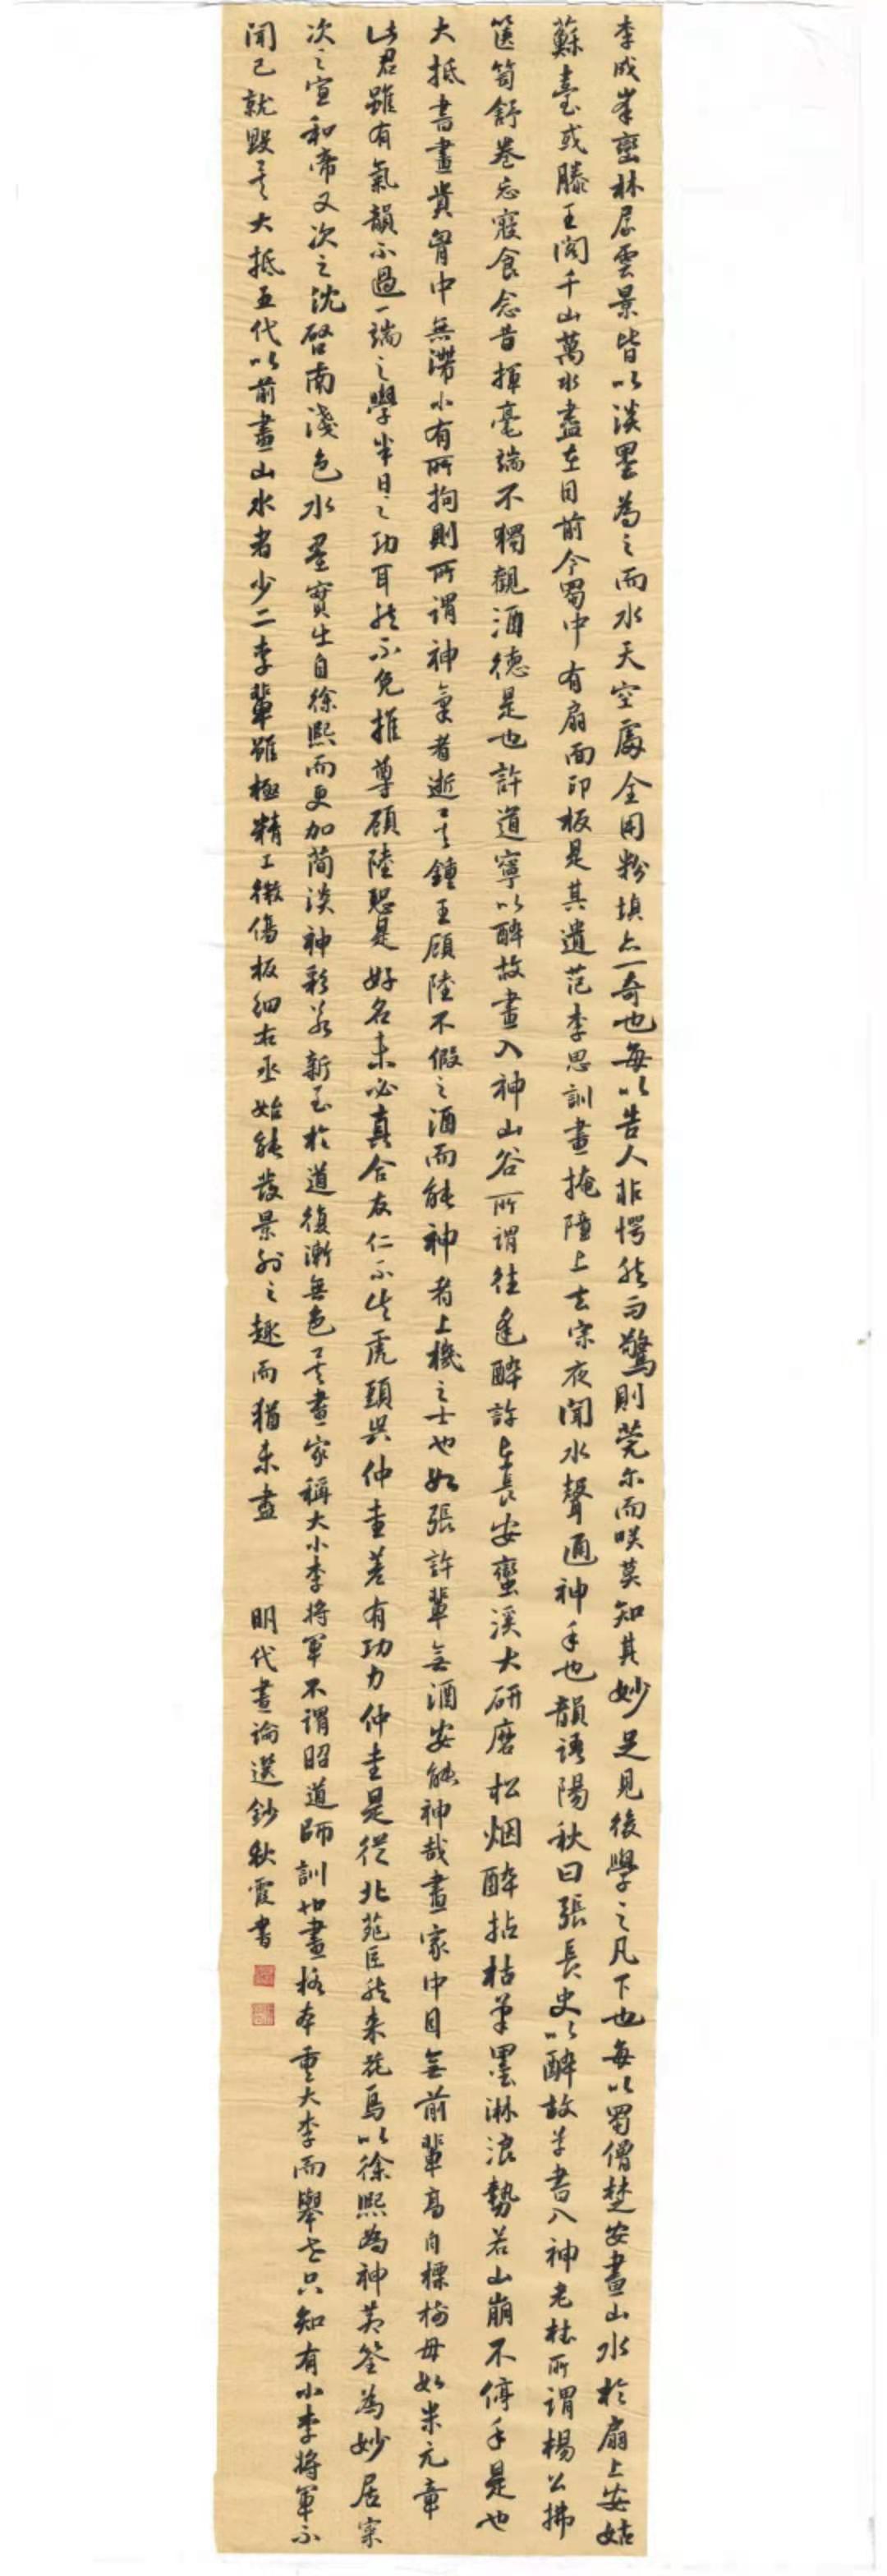 李成峯巒林屋雲景皆以淡墨為之而水天空處全用粉填上一奇也每以告人非愕然而驚則莞尔而咲莫知其妙足見後學之凡下也每以蜀僧楚安畫山水於扇上安姑
蘇臺或滕王閣千山萬水盡在目前今蜀中有扇面印板是其遺范李思訓畫掩障上玄宗夜聞水聲通神手也韻語陽秋曰張長史以醉故草書入神老杜所謂楊公拂
篋笥舒卷忘寢食念昔揮毫端不獨觀酒德是也許道寧以醉故畫入神山谷所謂往逢醉許在長安蠻溪大研磨松烟醉拈枯筆墨淋浪勢若山崩不停手是也
大抵書畫貴胷中無滯小有所拘則所謂神氣者逝矣鍾王顧陸不假之酒而能神者上機之士也如張許輩無酒安能神哉畫家中目無前輩高自標榜毋如米元章
此君雖有氣韻不過一端之學半日之功耳然不免推尊顧陸恐是好名未必真合友仁不失虎頭與仲圭差有功力仲圭是從北苑巨然来花鳥以徐熙為神黃筌為妙居寀
次之宣和帝又次之沈啓南淺色水墨實出自徐熙而更加簡淡神彩若新至於道復漸無色矣畫家稱大小李將軍不謂昭道師訓也畫格本重大李而舉世只知有小李將軍不
聞已就毀矣大抵五代以前畫山水者少二李輩雖極精工微傷板細右丞始能發景外之趣而猶未盡 明代畫論選鈔秋霞書